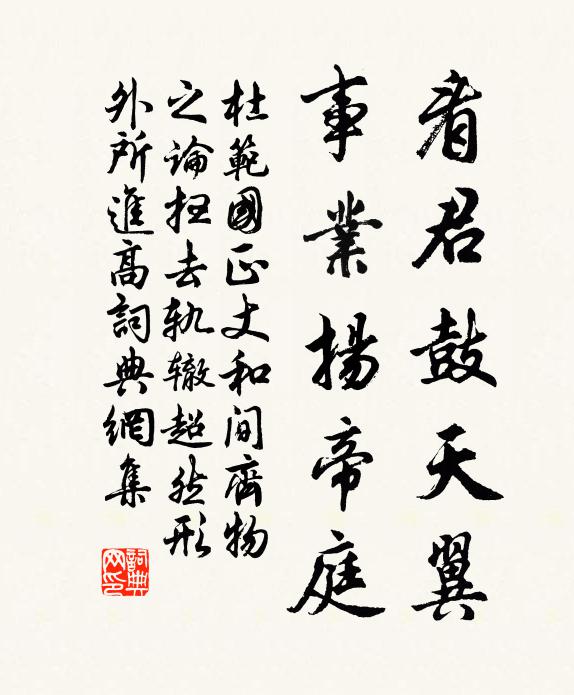 看君鼓天翼
事業揚帝庭
杜範國正丈和间齊物
之論抂去軌辙超然形
外所進高詞典網集
詞典
网印